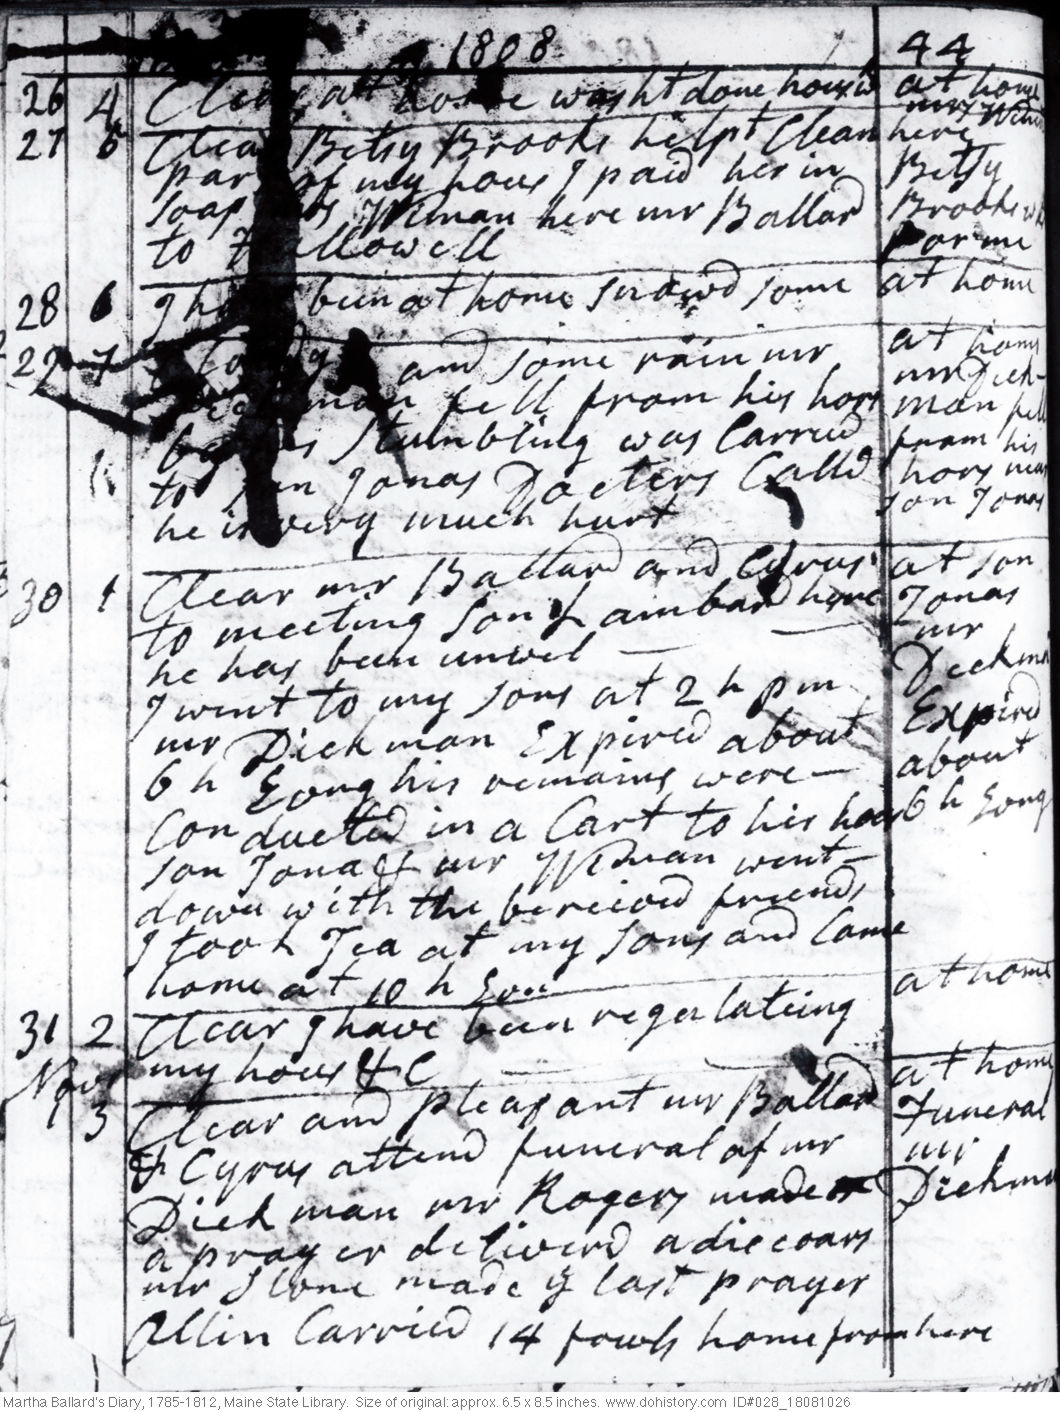 1808
44
26 4 Clear at home washt done housw
at home
27 5 Clear Betsy Brooks helpt Clean
part of my hous I paid her in
soap mrs Wiman here mr Ballard
to Hallowell
mrs Wiman
here
Betsy
Brooks
for me
28 6 I have been at home snowd some
at home
29 7 Cloudy and some rain mr
Dickman fell from his hors
by his stumbling was Carried
to son Jonas Docters Calld
he is very much hurt
at home
mr Dick-
man fell
from his
hors near
son Jonas
30 1 Clear mr Ballard and Cyrus
to meeting son Lambard here
he has been unwel
I went to my sons at 2 h pm
mr Dickman Expired about
6 h Evng his remains were
Conducted in a Cart to his hous
son Jonas & mr Wiman went
down with the bereievd friends
I took Tea at my sons and Came
home at 10 h Evn
at son
Jonas
mr
Dickman
Expired
about
6 h Evng
31 2 Clear I have been regulateing
my hous & C
at home
Novr
1 3 Clear and pleasant mr Ballard
& Cyrus attend funeral of mr
Dickman mr Rogers made
a prayer deliverd a diecoars
mr Stone made ye last prayer
Allin Carried 14 fowls home from here
at home
Funeral
mr
Dickman
Martha Ballard's Diary, 1785-1812, Maine State Library. Size of original: approx. 6.5 x 8.5 inches. www.dohistory.com ID#028_18081026